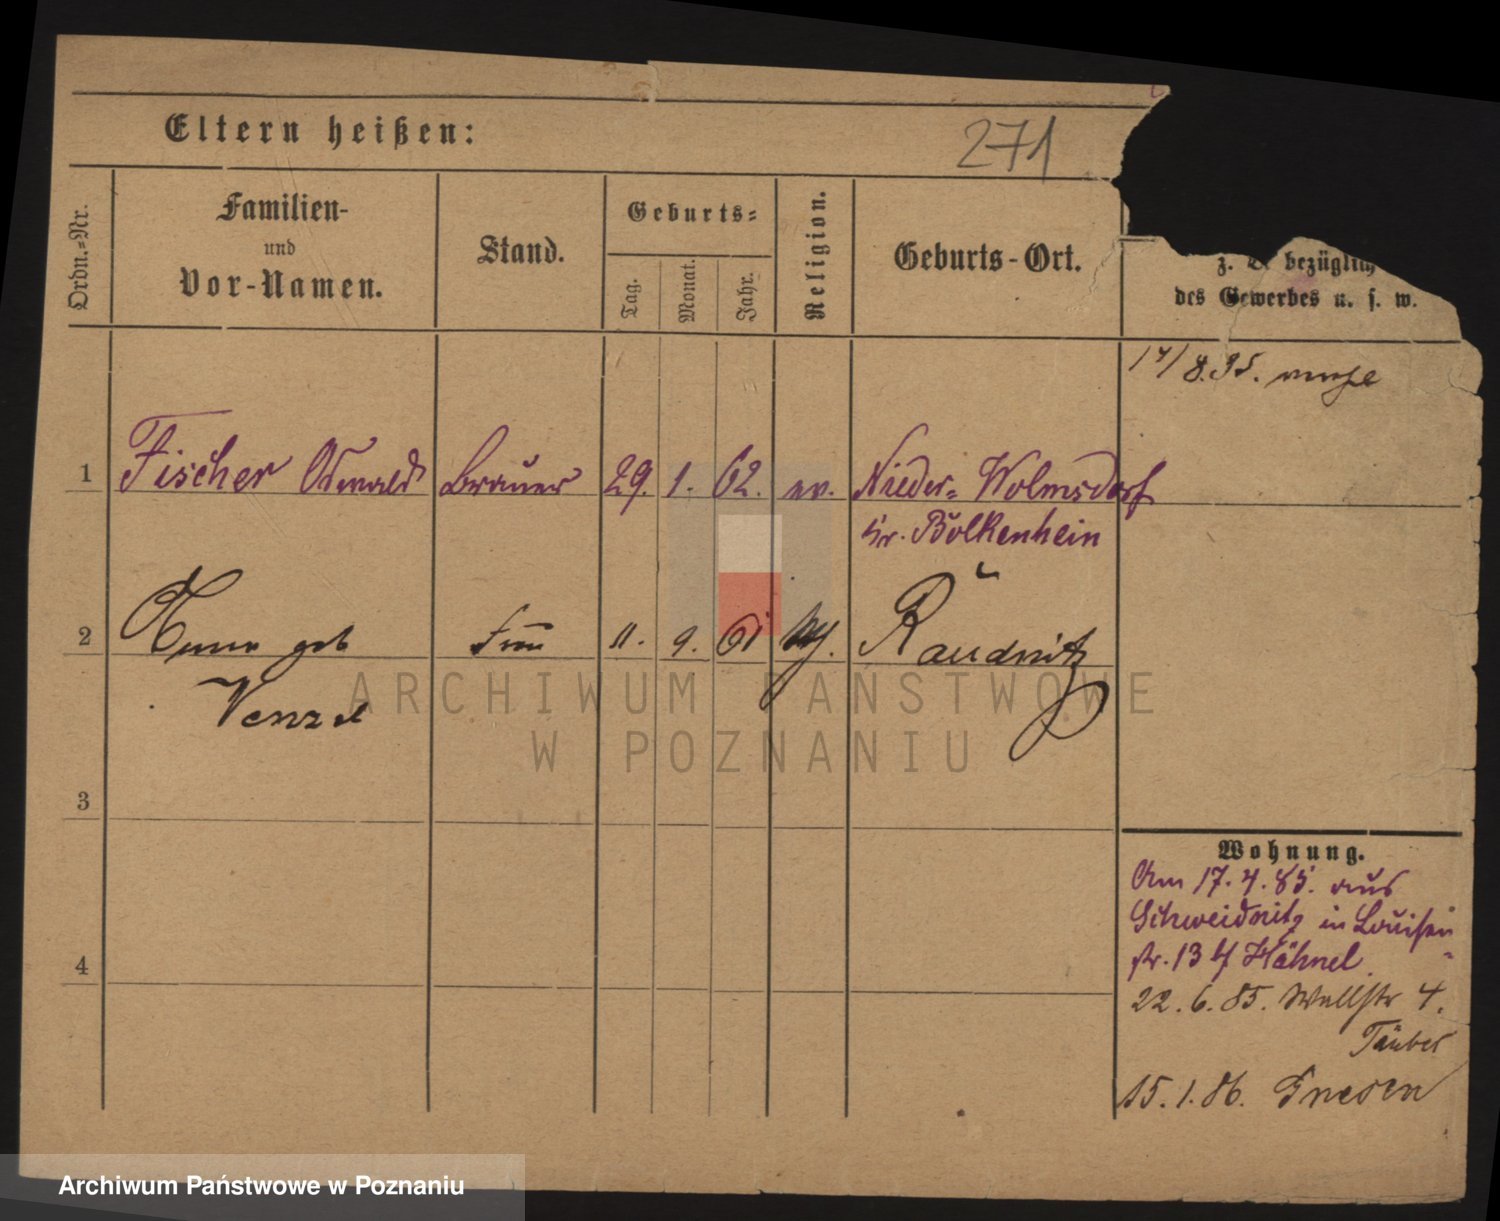 Eltern heißen:
271
Ordn.=Nr.
Familien-
und
Vor-Namen.
Stand.
Geburts=
Tag.
Monat.
Jahr.
Religion.
Geburts-Ort.
z. B. bezüglich
des Gewerbes u. s. w.
1
Fischer Oswald Brauer 29. 1. 62. ev. Nieder= Wolmsdorf
Kr. Bolkenhein
2
Anna geb Frau 11. 9. 61 Raudnitz
Venzel
3
4
Wohnung.
Am 17.4.85. aus
Schweidnitz in Louisen=
str. 13 b/ Hähnel
22.6.85. Wallstr 4.
Täuber
15.1.86. Gnesen
ARCHIWUM PAŃSTWOWE
W POZNANIU
Archiwum Państwowe w Poznaniu